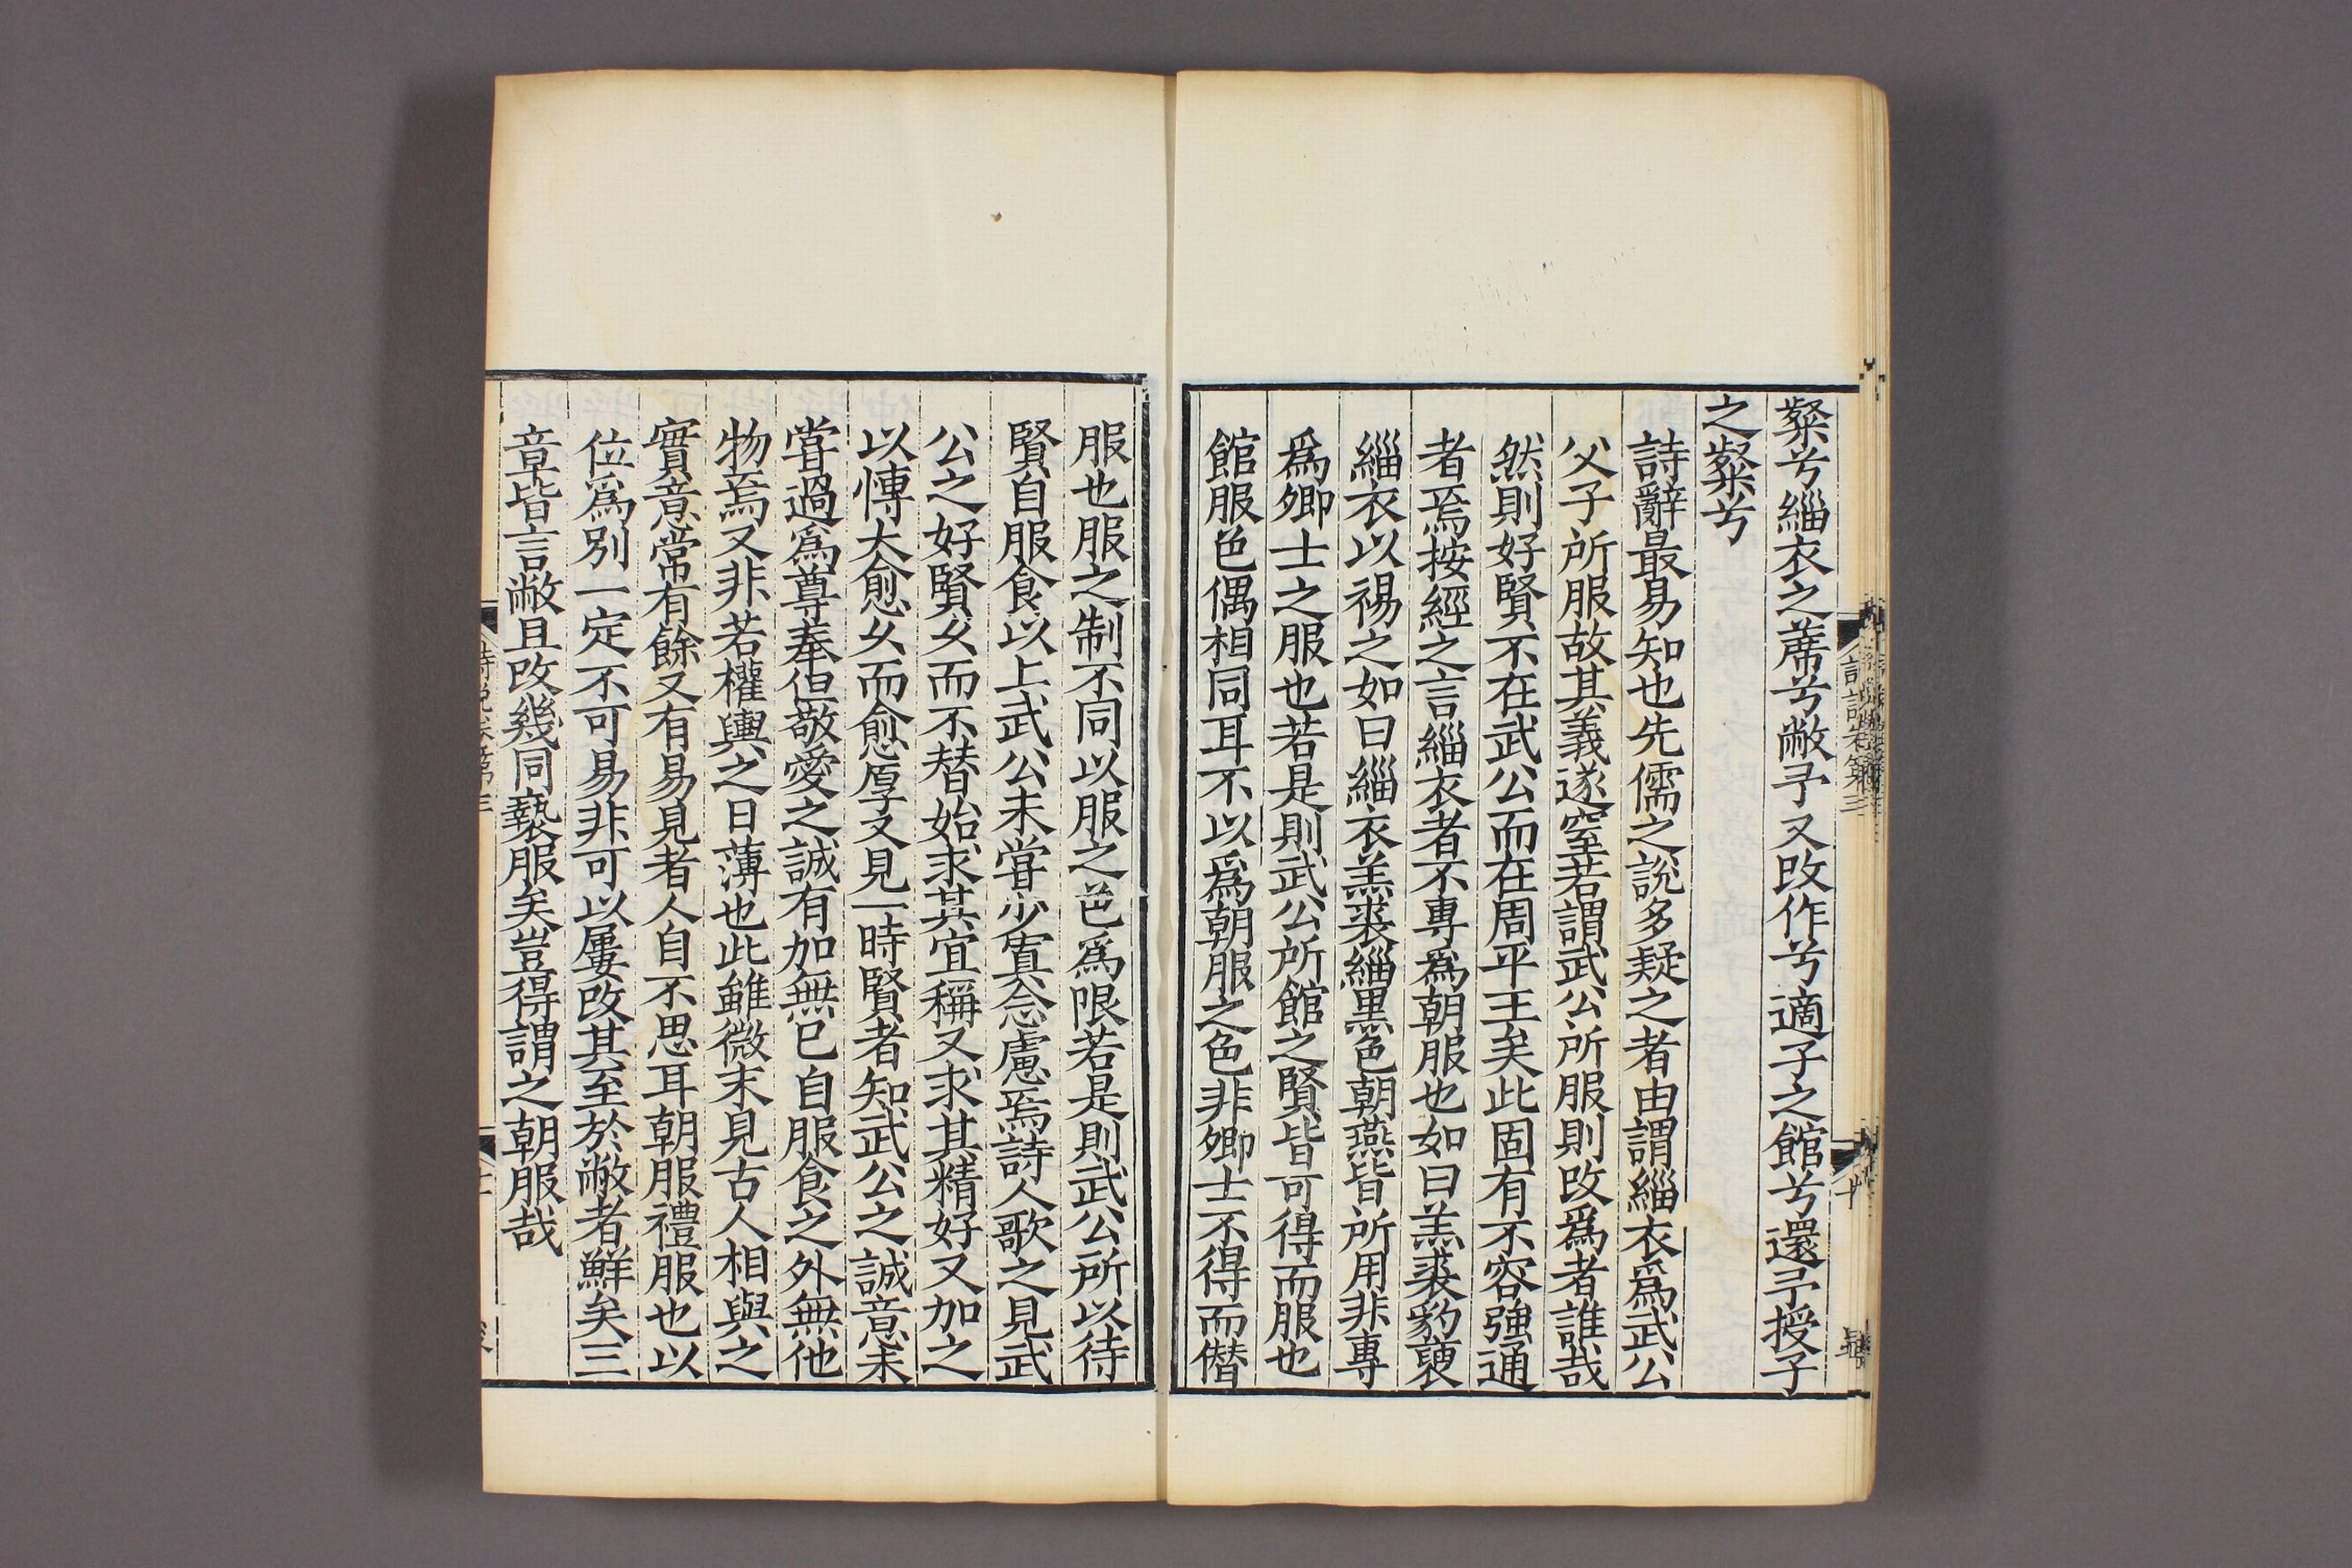 粲兮緇衣之蓆兮敝予又改作兮適子之館兮還予授子
之粲兮
詩辭最易知也先儒之說多疑之者由謂緇衣爲武公
父子所服故其義遂窒若謂武公所服則改爲者誰哉
然則好賢不在武公而在周平王矣此固有不容強通
者焉按經之言緇衣者不專爲朝服也如曰羔裘豹褎
緇衣以裼之如曰緇衣羔裘緇黒色朝燕皆所用非專
爲卿士之服也若是則武公所館之賢皆可得而服也
館服色偶相同耳不以爲朝服之色非卿士不得而僣
服也服之制不同以服之色爲限若是則武公所以待
賢自服食以上武公未甞少寘念慮焉詩人歌之見武
公之好賢久而不替始求其宜稱又求其精好又加之
以慱大愈久而愈厚又見一時賢者知武公之誠意未
甞過爲尊奉但敬愛之誠有加無已自服食之外無他
物焉又非若權輿之日薄也此雖微末見古人相與之
實意常有餘又有易見者人自不思耳朝服禮服也以
位爲别一定不可易非可以屢改其至於敝者鮮矣三
章皆言敝且改幾同褻服矣豈得謂之朝服哉